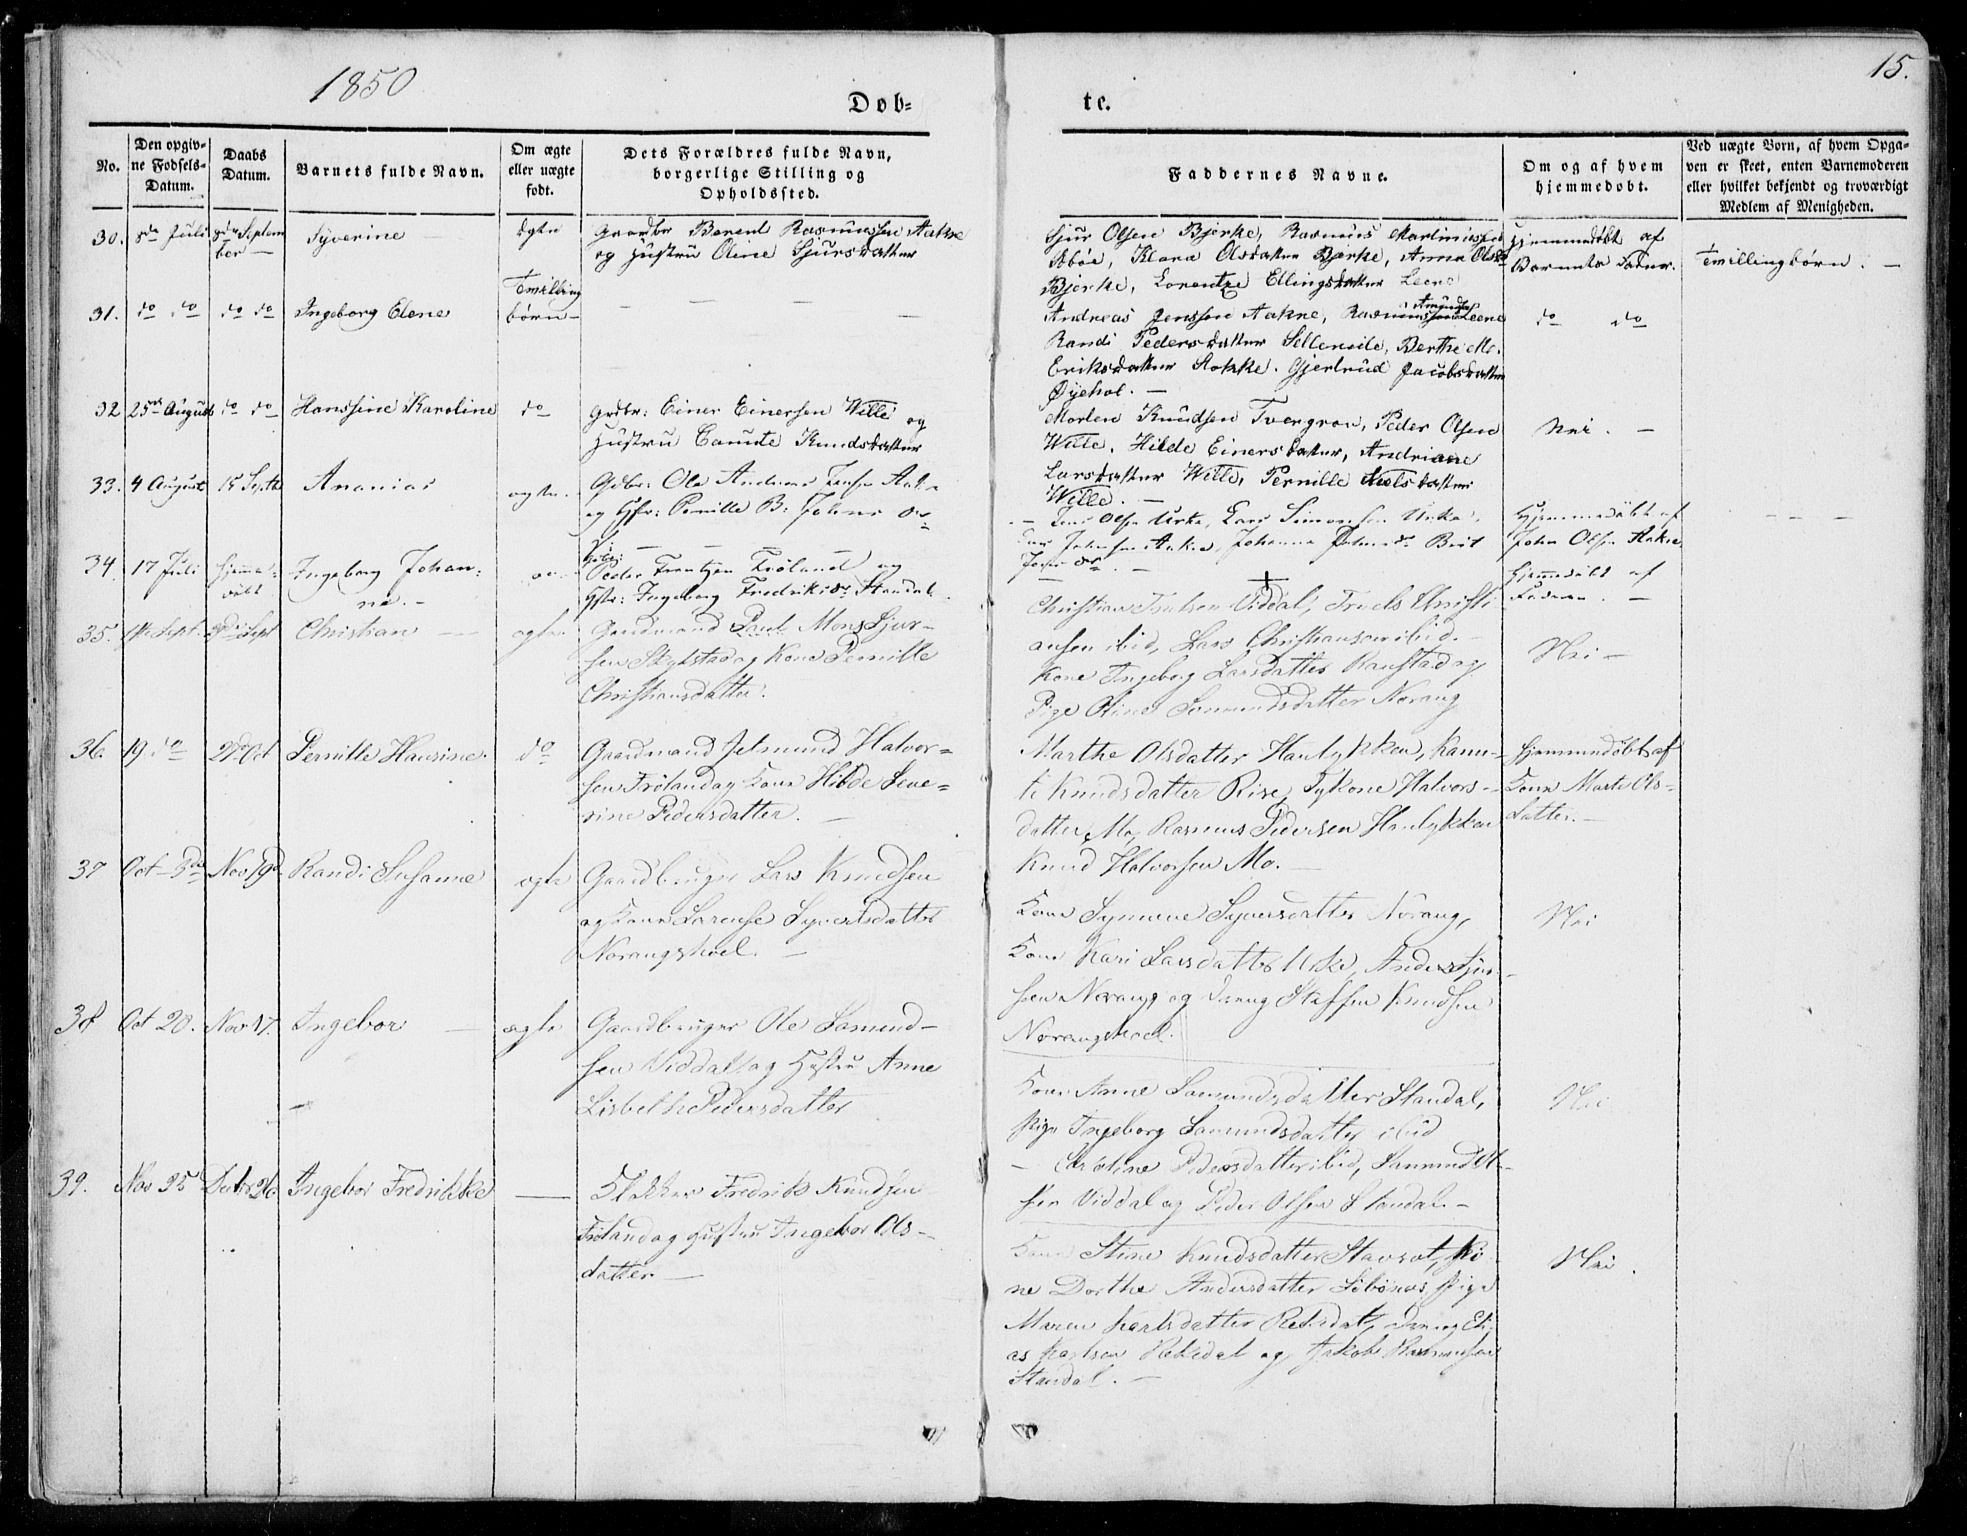 1850
15.
Døb=
te.
No.
Den opgiv-
ne Fødsels-
Datum.
Daabs
Datum.
Barnets fulde Navn.
Om ægte
eller uægte
født.
Dets Forældres fulde Navn,
borgerlige Stilling og
Opholdssted.
Faddernes Navne.
Om og af hvem
hjemmedøbt.
Ved uægte Børn, af hvem Opga-
ven er skeet, enten Barnemoderen
eller hvilket bekjendt og troværdigt
Medlem af Menigheden.
30.
8de Juli
8de Septem
ber —
Syverine
Ægte
Tvilling
Gaardbr Berent Rasmussen Aakne
og Hustru Oline Sjursdatter
Sjur Olsen Bjerke, Rasmus Martinussen
Klara Olsdatter Bjerke, Anna Olsd
Bjerke, Lorentze Ellingsdatter Leene
Hjemmedøbt af
Barnets Fader.
Tvillingbørn. —
31.
do do
do do
Ingeborg Elene
børn —
— — —
Andreas Jenssen Aakne, Rasmus Amundsen Leene
Randi Pedersdatter Sellereite, Berthe M.
Eriksdatter Aakke. Gjertrud Jacobsdatter
Øyehol. —
do do
32
25de August
do do
Hanssine Karoline
do
Grdbr: Einer Einersen Wille og
Hustru Canute Knudsdatter
Morten Knudsen Tvergrov, Peder Olsen
Wille, Hilde Einersdatter, Andriane
Larsdatter Wille, Pernille Nielsdatter
Wille. —
Nei. —
33.
4 August
15 Septbr
Ananias
ægte.
Gdbr: Ole Andreas Jensen Aak-
og Hfr: Pernille B: Johns Dr
— Jens Olsen Urke, Lars Simonsen Urke,
Johnsen Aakre, Johanne Johns Dr Brit
Johns Dr. —
Hjemmedøbt af
John Olsen Aakre
— — —
34.
17 Juli
Hjemme-
døbt
Ingeborg Johan-
ne. —
Peder Frantzen Frøland og
Hstr: Ingeborg Fredriks Dr Standal.
Hjemmedøbt af
Faderen. —
35.
1ste Sept.
Sept
Christian —
ægte
Gaardmand Paul Mons Sjur-
sen Skylstad og Kone Pernille
Christiansdatter.
Christian Truelsen Viddal, Truels Christi
ansen ibid, Lars Christiansen ibid. —
Kone Ingeborg Larsdatter Ranstad og
Pige Oline Sommundsdatter Norang
Nei —
36.
19. do
27de Oct
Pernille Hansine.
do
Gaardmand Jetmund Halvor=
sen Frøland og Kone Hilde Seve=
rine Pedersdatter. —
Marthe Olsdatter Haulykken, Kanu-
te Knudsdatter Rise, Sykone Halvors-
datter Mo, Rasmus Pedersen Haulykken
Knud Halvorsen Mo. —
Hjemmedøbt af
Kone Marte Ols-
datter. —
37
Oct 3de
Nov 19de
Randi Susanne
ægte
Gaardbruger Lars Knudsen
og Kone Larense Syvertsdatter
Norangshoel. —
Kone Symene Syversdatter Norang,
Kone Kari Larsdatter Urke, Anders Sjur-
sen Norang og Dreng Staffen Knudsen
Norangshoel.
Nei
38
Oct 20.
Nov 17.
Ingebor —
ægte
Gaardbruger Ole Samund-
sen Viddal og Hustru Anne
Lisbethe Pedersdatter
Kone Anne Samundsdatter Standal,
Pige Ingeborg Samundsdatter ibid
— Caroline Pedersdatter ibid, Samund Ol-
sen Viddal og Peder Olsen Standal. —
Nei
39.
Nov 25
Decbr 26
Ingebor Fredrikke
—
Klokker Fredrik Knudsen
Frøland og Hustru Ingebor Ols-
datter —
Kone Stine Knudsdatter Stavset, Ko-
ne Dorthe Andersdatter Søbønes, Pige
Maren Karlsdatter Rekedal, Dreng Eli-
as Karlsen Rekedal og Jakob Rasmussen
Standal. —
Nei.